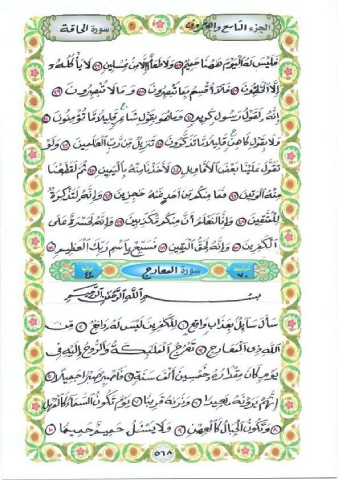 الجزء التاسع والعشرون سورة الحاقة
فَلَيْسَ لَهُ الْيَوْمَ هَاهُنَا حَمِيمٌ ۝ وَلَا طَعَامٌ إِلَّا مِنْ غِسْلِينٍ ۝ لَا يَأْكُلُهُ
إِلَّا الْخَاطِئُونَ ۝ فَلَا أُقْسِمُ بِمَا تُبْصِرُونَ ۝ وَمَا لَا تُبْصِرُونَ ۝
إِنَّهُ لَقَوْلُ رَسُولٍ كَرِيمٍ ۝ وَمَا هُوَ بِقَوْلِ شَاعِرٍ قَلِيلًا مَا تُؤْمِنُونَ ۝
وَلَا بِقَوْلِ كَاهِنٍ قَلِيلًا مَا تَذَكَّرُونَ ۝ تَنْزِيلٌ مِنْ رَبِّ الْعَالَمِينَ ۝ وَلَوْ
تَقَوَّلَ عَلَيْنَا بَعْضَ الْأَقَاوِيلِ ۝ لَأَخَذْنَا مِنْهُ بِالْيَمِينِ ۝ ثُمَّ لَقَطَعْنَا
مِنْهُ الْوَتِينَ ۝ فَمَا مِنْكُمْ مِنْ أَحَدٍ عَنْهُ حَاجِزِينَ ۝ وَإِنَّهُ لَتَذْكِرَةٌ
لِلْمُتَّقِينَ ۝ وَإِنَّا لَنَعْلَمُ أَنَّ مِنْكُمْ مُكَذِّبِينَ ۝ وَإِنَّهُ لَحَسْرَةٌ عَلَى
الْكَافِرِينَ ۝ وَإِنَّهُ لَحَقُّ الْيَقِينِ ۝ فَسَبِّحْ بِاسْمِ رَبِّكَ الْعَظِيمِ ۝
سورة المعارج
بِسْمِ اللَّهِ الرَّحْمَنِ الرَّحِيمِ
سَأَلَ سَائِلٌ بِعَذَابٍ وَاقِعٍ ۝ لِلْكَافِرِينَ لَيْسَ لَهُ دَافِعٌ ۝ مِنَ
اللَّهِ ذِي الْمَعَارِجِ ۝ تَعْرُجُ الْمَلَائِكَةُ وَالرُّوحُ إِلَيْهِ فِي
يَوْمٍ كَانَ مِقْدَارُهُ خَمْسِينَ أَلْفَ سَنَةٍ ۝ فَاصْبِرْ صَبْرًا جَمِيلًا ۝
إِنَّهُمْ يَرَوْنَهُ بَعِيدًا ۝ وَنَرَاهُ قَرِيبًا ۝ يَوْمَ تَكُونُ السَّمَاءُ كَالْمُهْلِ
۝ وَتَكُونُ الْجِبَالُ كَالْعِهْنِ ۝ وَلَا يَسْأَلُ حَمِيمٌ حَمِيمًا ۝
٥٦٨